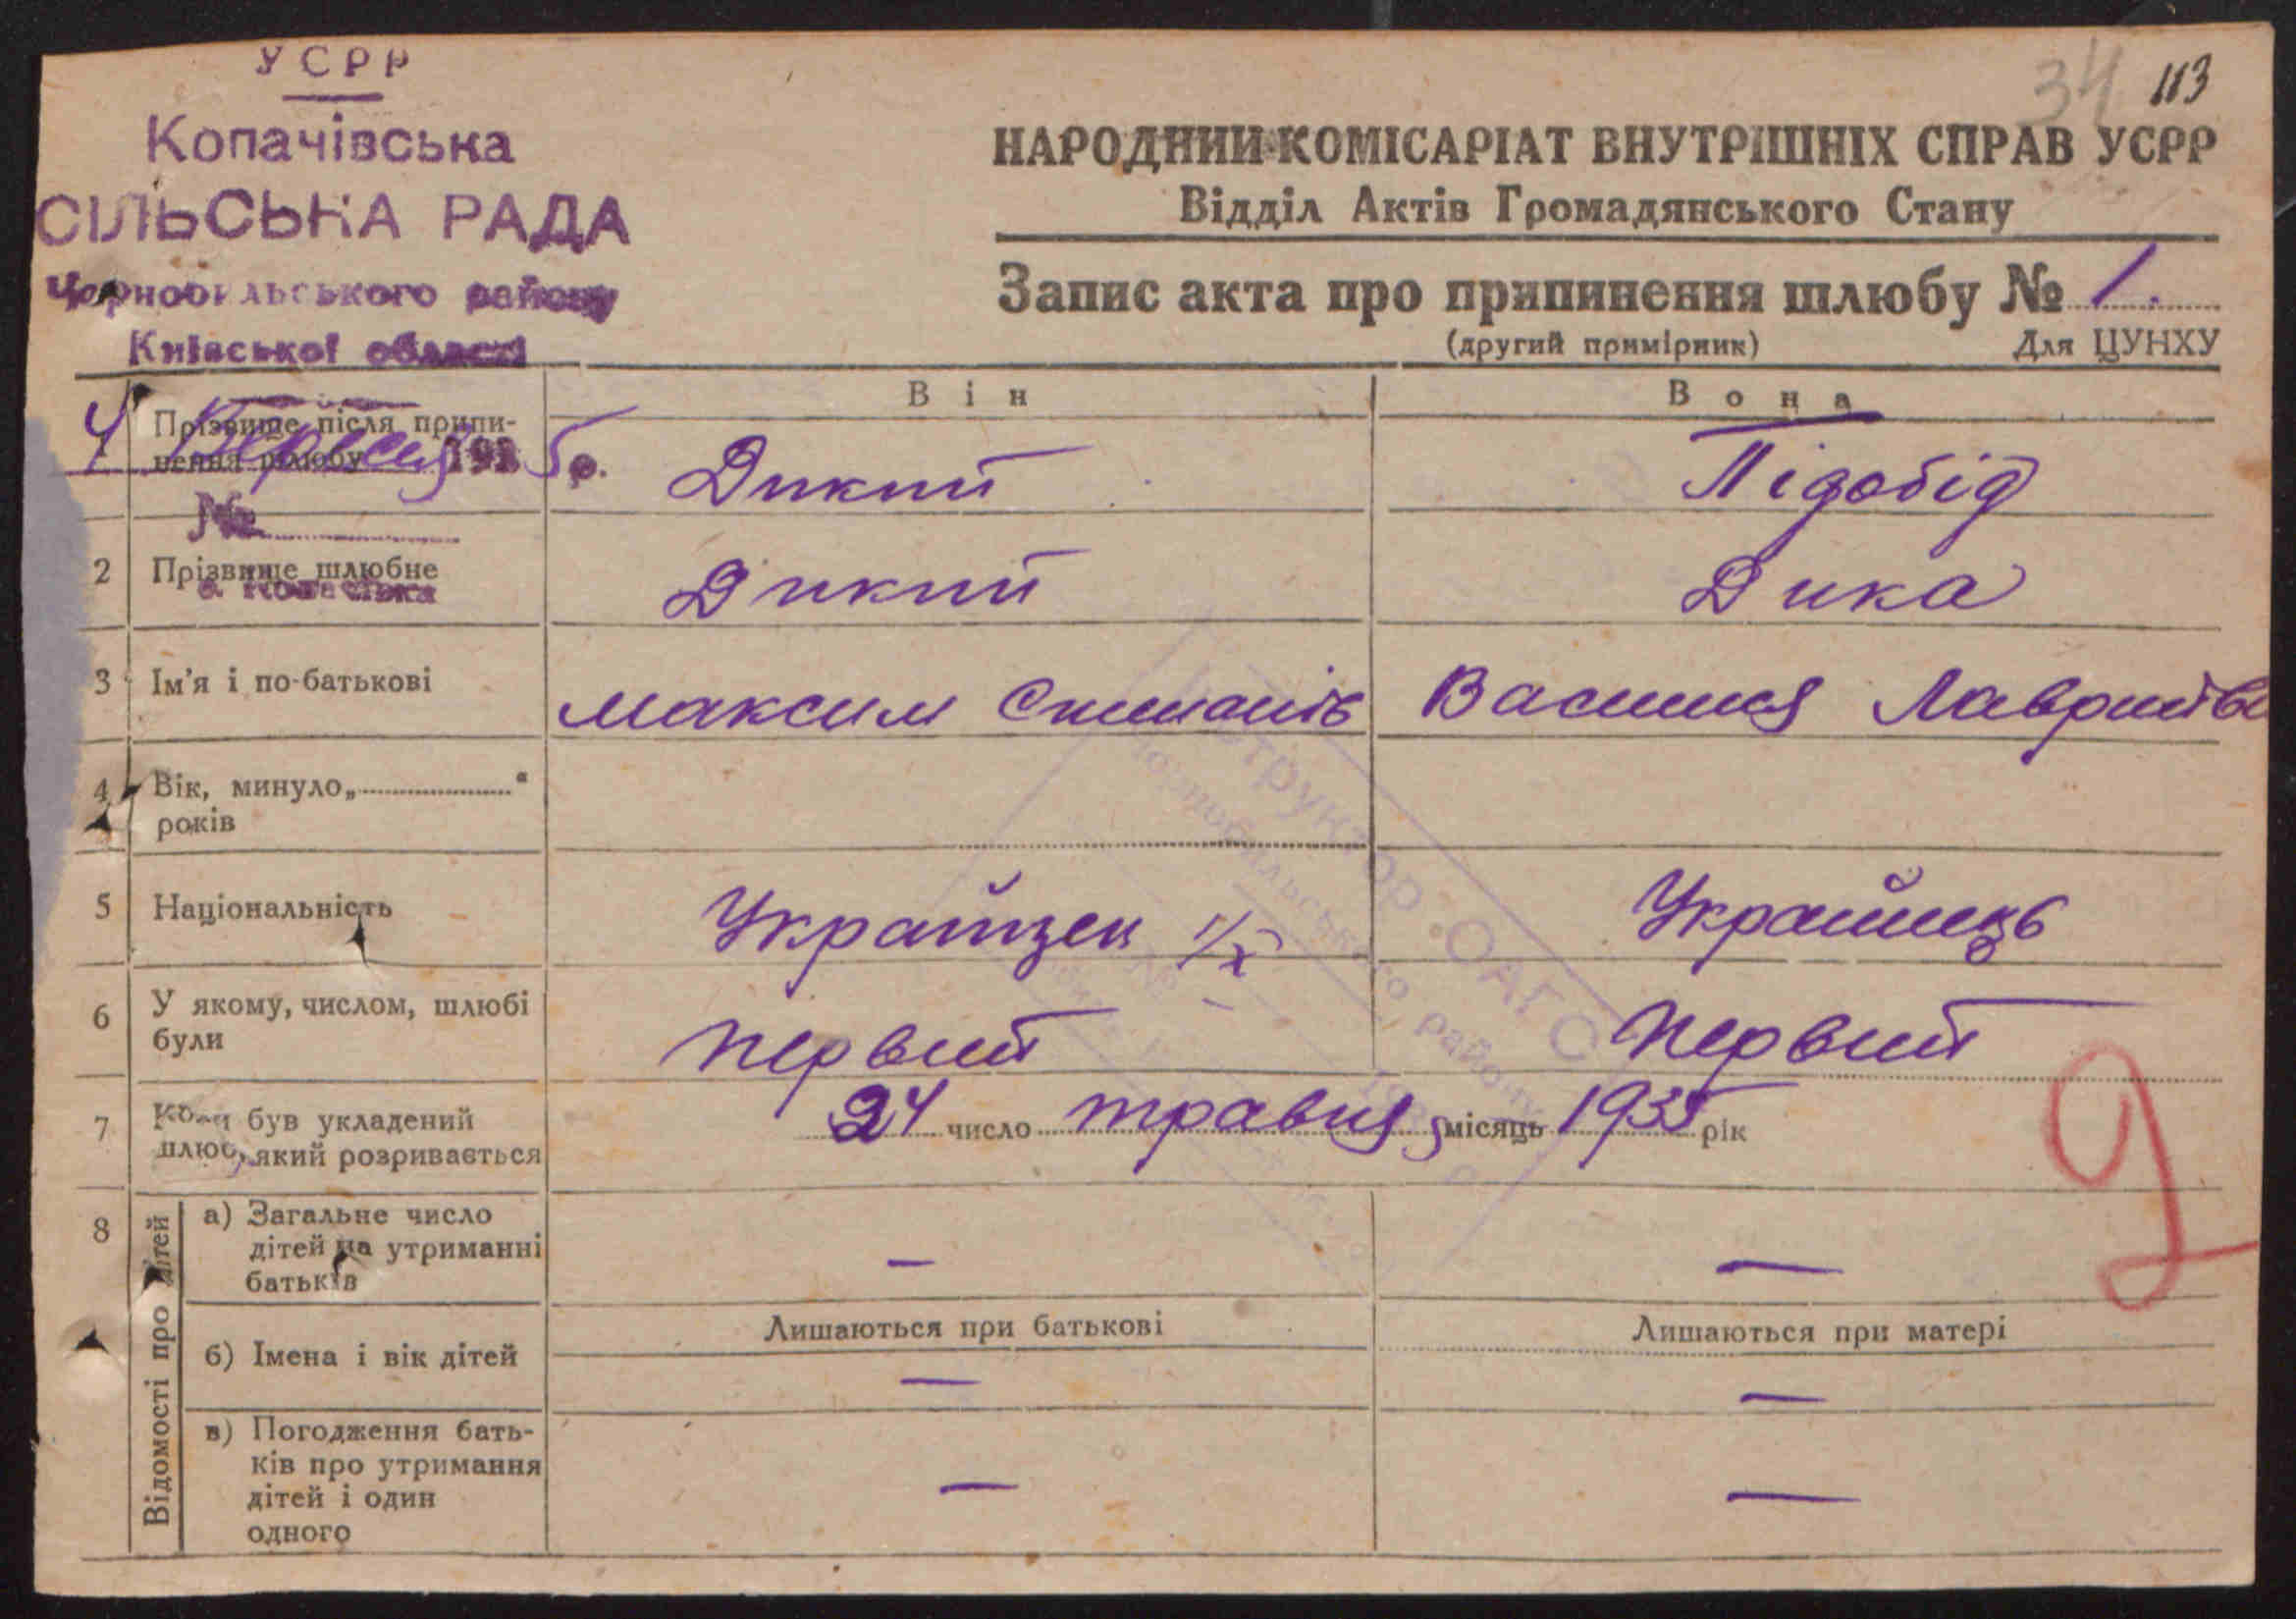 УСРР
Копачівська
СІЛЬСЬКА РАДА
Чорнобильського району
Київської області
4 Вересня 1935 р.
№
с. Копачівка
34 113
НАРОДНИЙ КОМІСАРІАТ ВНУТРІШНІХ СПРАВ УСРР
Відділ Актів Громадянського Стану
Запис акта про припинення шлюбу № 1.
(другий примірник) Для ЦУНХУ
Він Вона
1 Прізвище після припинення шлюбу Дикий Підобід
2 Прізвище шлюбне Дикий Дика
3 Ім'я і по-батькові Максим Василися
4 Вік, минуло „ “
років
5 Національність Украйзен 1/X Украйнець
6 У якому, числом, шлюбі
були Первий Первий
7 Коли був укладений
шлюб, який розривається 24 число травня місяць 1935 рік
8 Відомості про дітей
а) Загальне число
дітей на утриманні
батьків — —
б) Імена і вік дітей Лишаються при батькові Лишаються при матері
— —
в) Погодження бать-
ків про утримання
дітей і один
одного — —
Інструктор ОАГС
Чорнобильського району
9